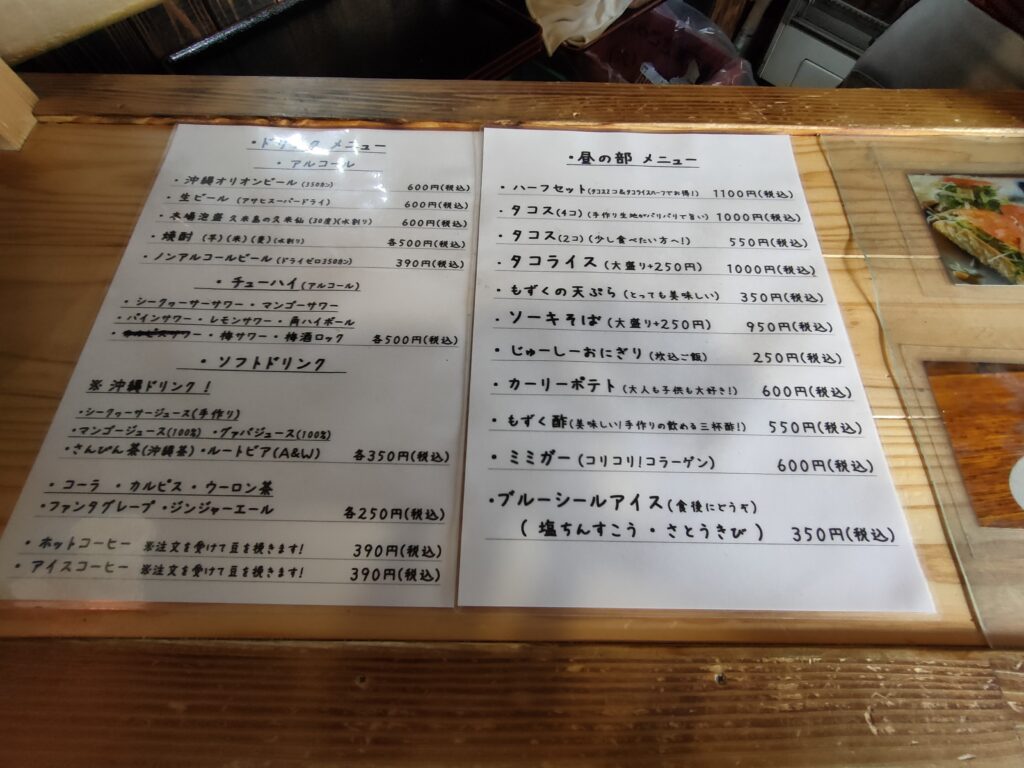 ・ドリンク メニュー
・アルコール
・沖縄オリオンビール(350カン) 600円(税込)
・生ビール (アサヒスーパードライ) 600円(税込)
・本場泡盛 久米島の久米仙 (30度)(水割り) 600円(税込)
・焼酎 (芋)(米)(麦)(水割り) 各500円(税込)
・ノンアルコールビール(ドライゼロ350カン) 390円(税込)
・チューハイ(アルコール)
・シークヮーサーサワー・マンゴーサワー
・パインサワー・レモンサワー・角ハイボール
・カルピスサワー・梅サワー・梅酒ロック 各500円(税込)
・ソフトドリンク
※ 沖縄ドリンク！
・シークヮーサージュース(手作り)
・マンゴージュース(100%) ・グァバジュース(100%)
・さんぴん茶(沖縄茶)・ルートビア(A&W) 各350円(税込)
・コーラ ・カルピス・ウーロン茶
・ファンタグレープ・ジンジャーエール 各250円(税込)
・ホットコーヒー ※注文を受けて豆を挽きます! 390円(税込)
・アイスコーヒー ※注文を受けて豆を挽きます! 390円(税込)
・昼の部 メニュー
・ハーフセット(タコス2コ&タコライスハーフでお得!) 1100円(税込)
・タコス(4コ) (手作り生地がパリパリで旨い) 1000円(税込)
・タコス(2コ) (少し食べたい方へ!) 550円(税込)
・タコライス (大盛り+250円) 1000円(税込)
・もずくの天ぷら (とっても美味しい) 350円(税込)
・ソーキそば (大盛り+250円) 950円(税込)
・じゅーしーおにぎり (炊込ご飯) 250円(税込)
・カーリーポテト (大人も子供も大好き!) 600円(税込)
・もずく酢(美味しい!手作りの飲める三杯酢!) 550円(税込)
・ミミガー (コリコリ!コラーゲン) 600円(税込)
・ブルーシールアイス(食後にどうぞ)
( 塩ちんすこう・さとうきび ) 350円(税込)